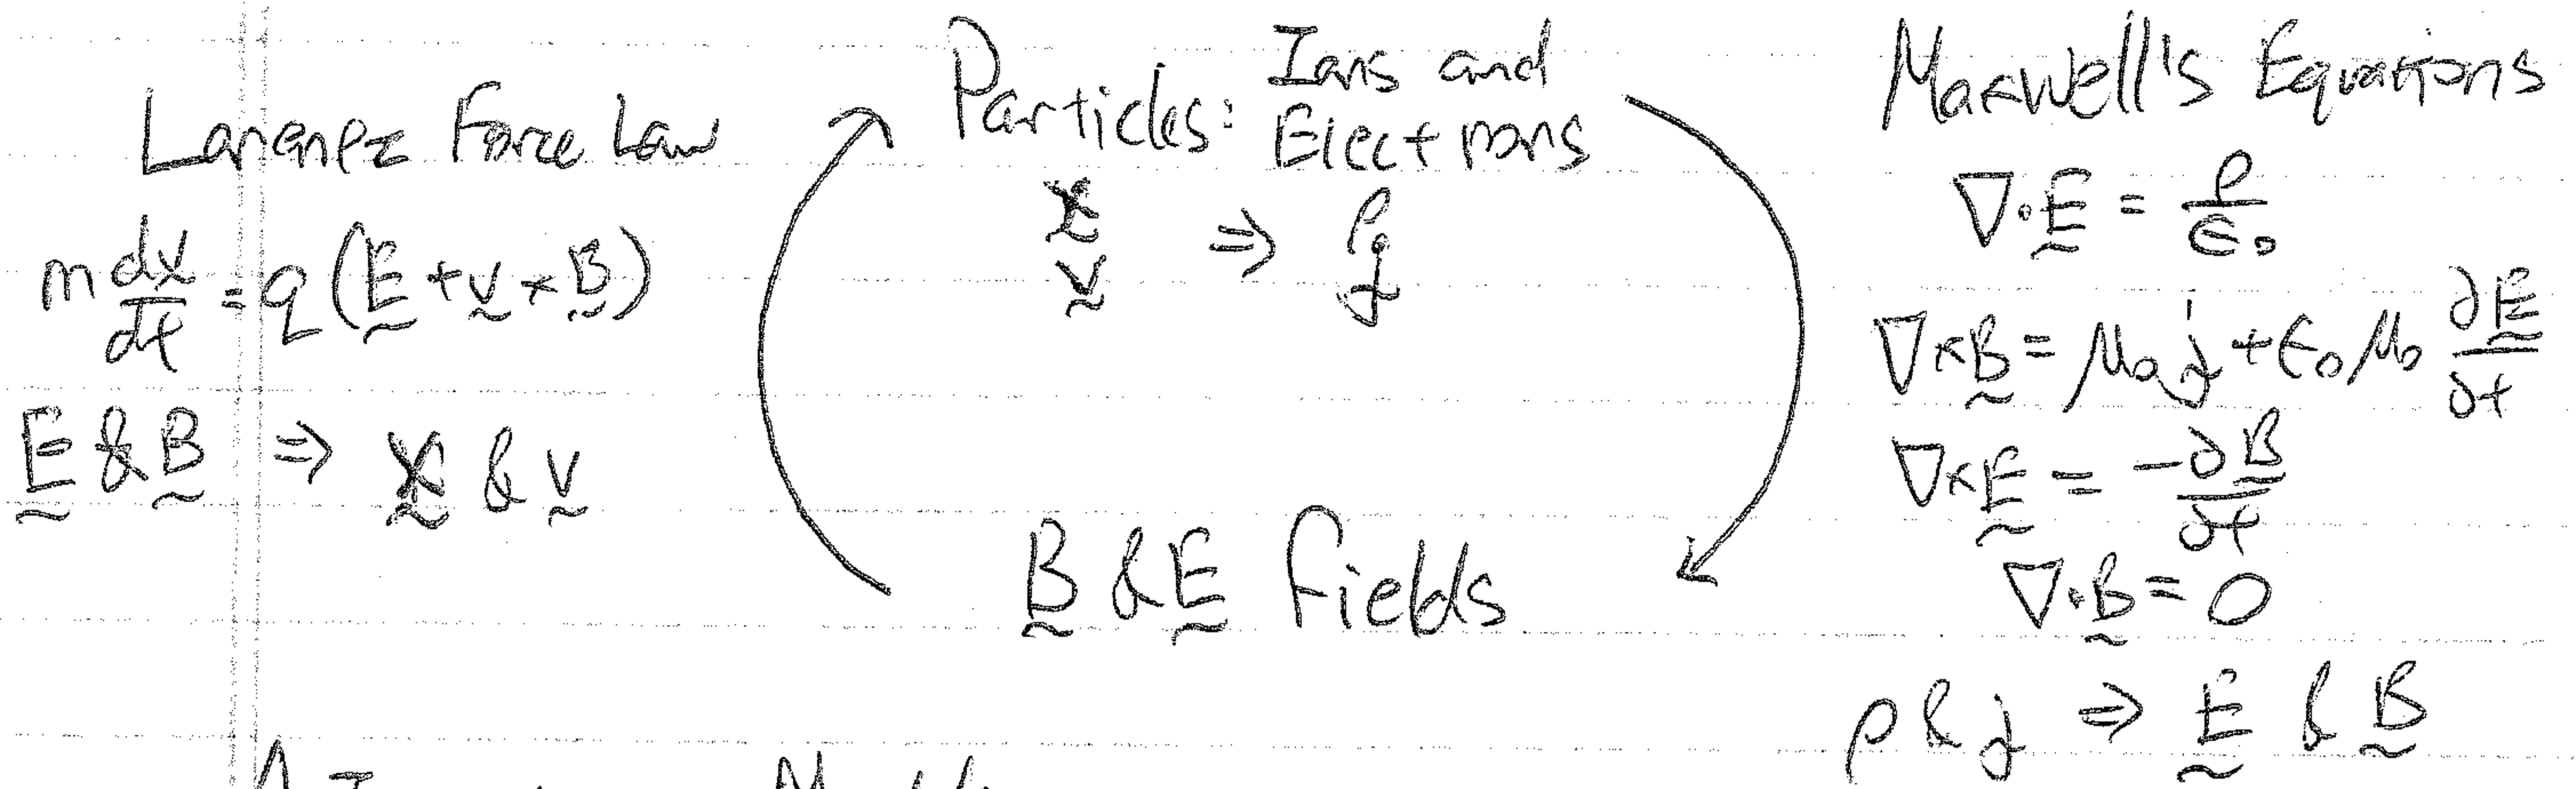 Lorentz Force Law
m dv/dt = q (E + v × B)
E & B ⇒ x & v
Particles: Ions and
Electrons
x
v ⇒ ρ
j
B & E fields
Maxwell's Equations
∇·E = ρ/ε₀
∇×B = μ₀ j + ε₀ μ₀ ∂E/∂t
∇×E = -∂B/∂t
∇·B = 0
ρ & j ⇒ E & B